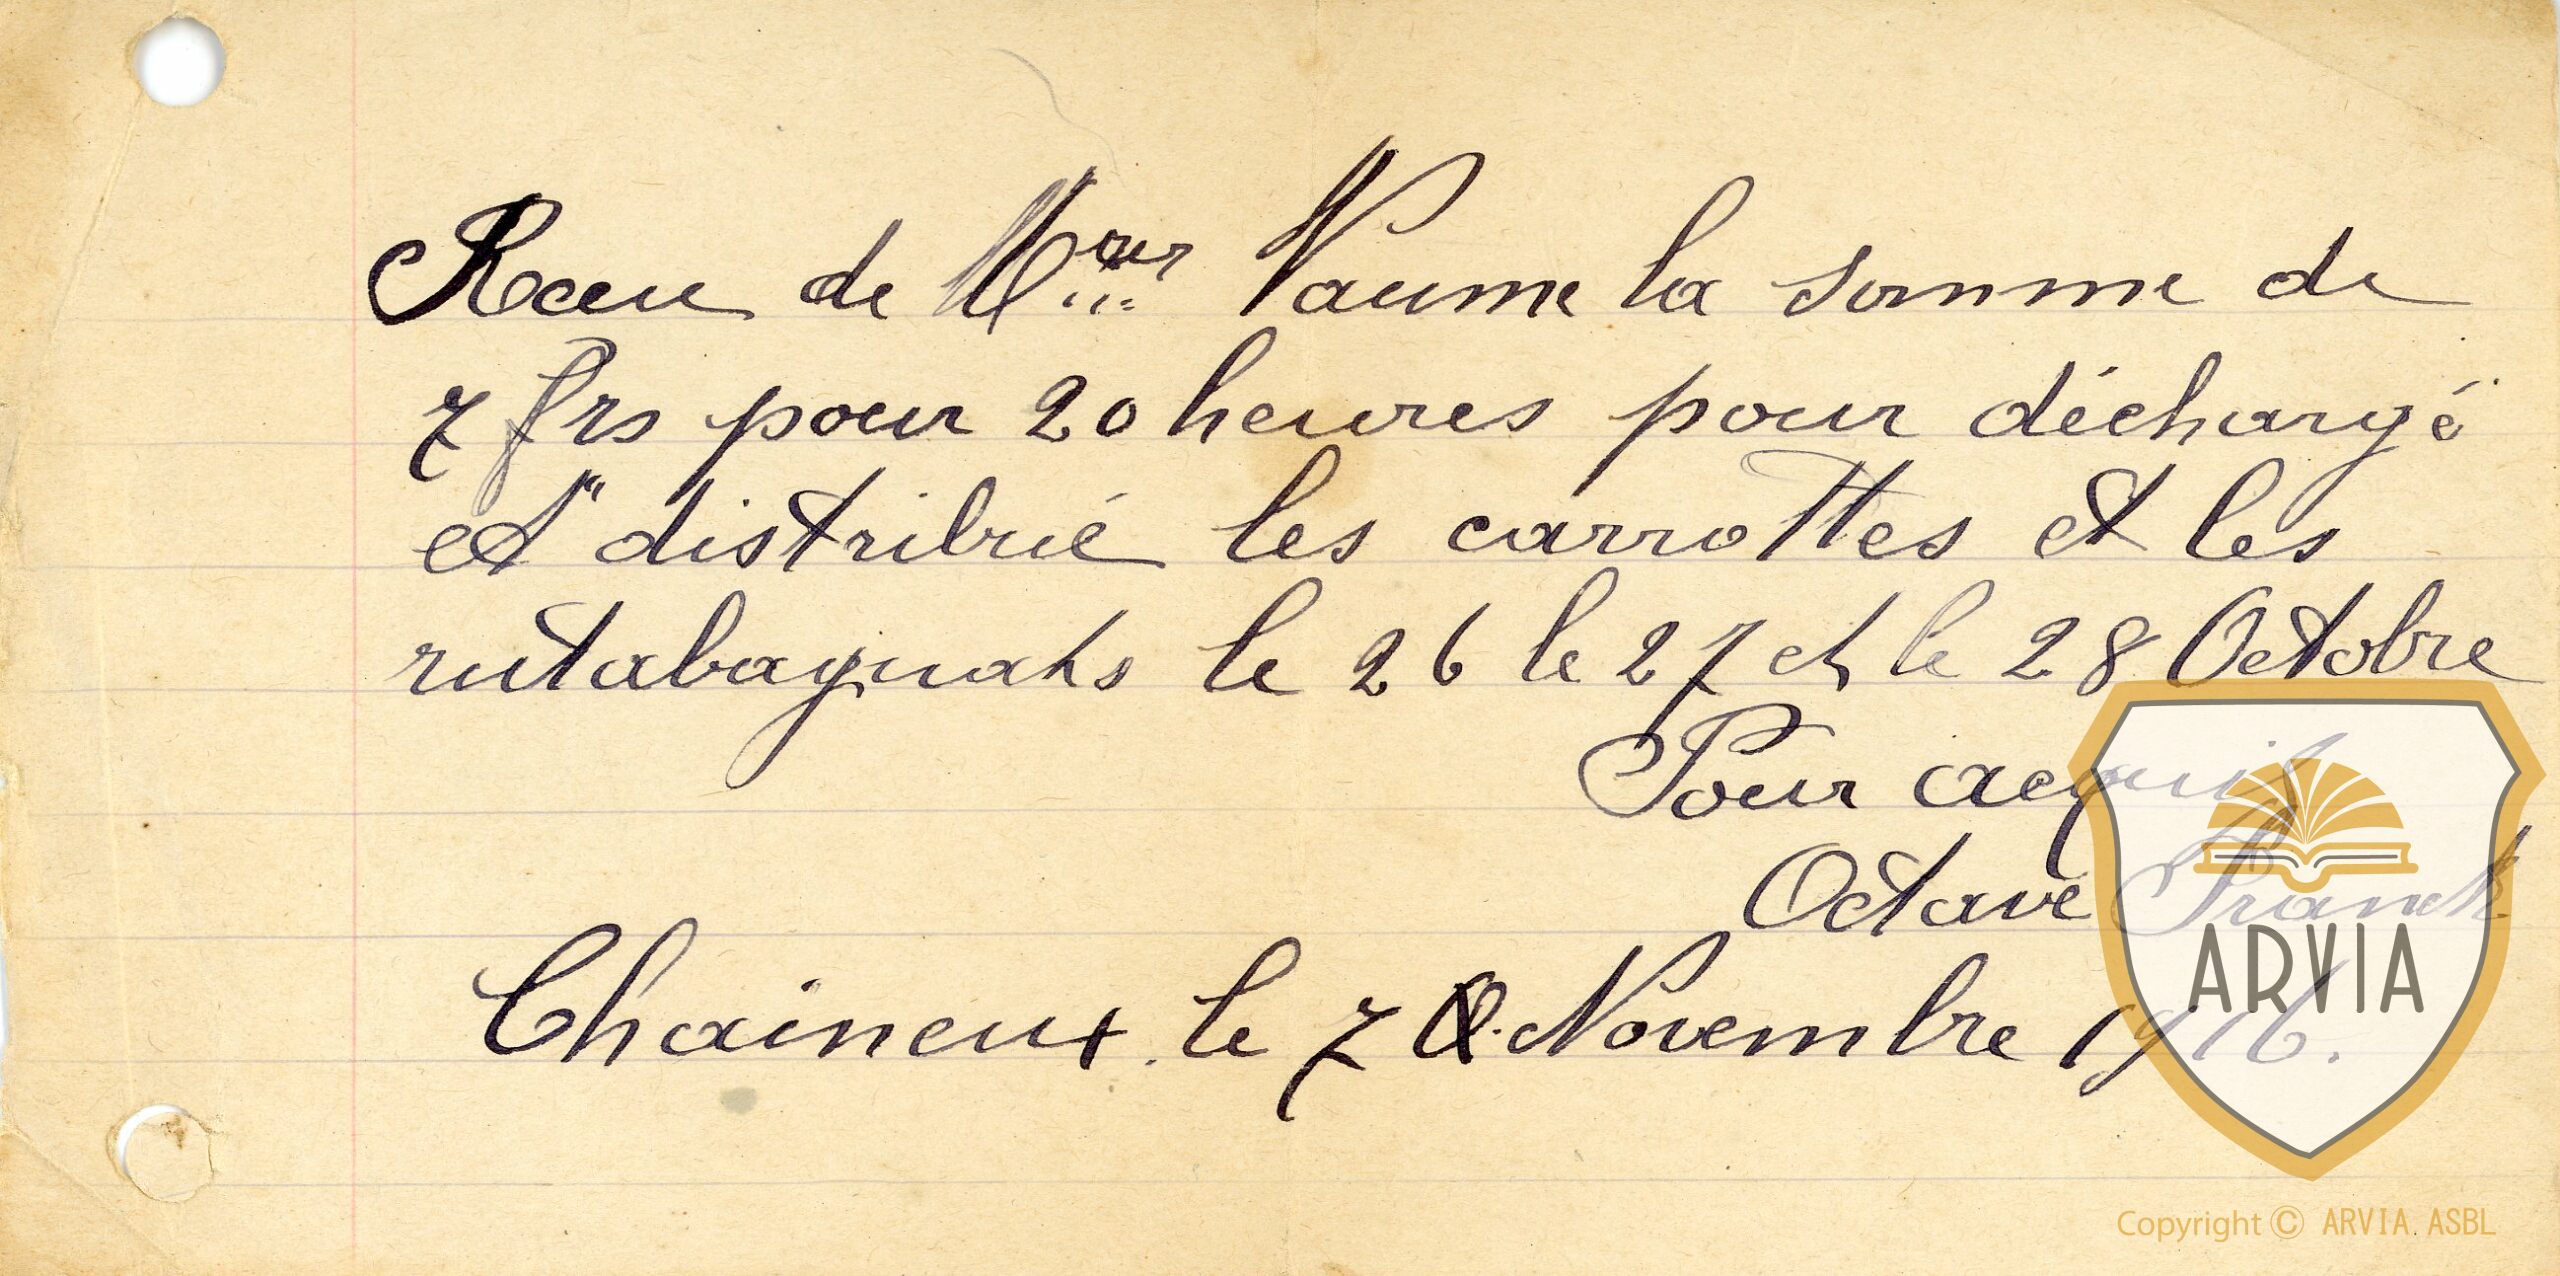 Recu de Mr Naume la somme de
7 frs pour 20 heures pour déchargé
et distribué les carrottes et les
rutabaguats le 26 le 27 et le 28 Octobre
Pour acquit
Octave Franck
Chaineux. le 7 Novembre 1916.
ARVIA
Copyright © ARVIA. ASBL